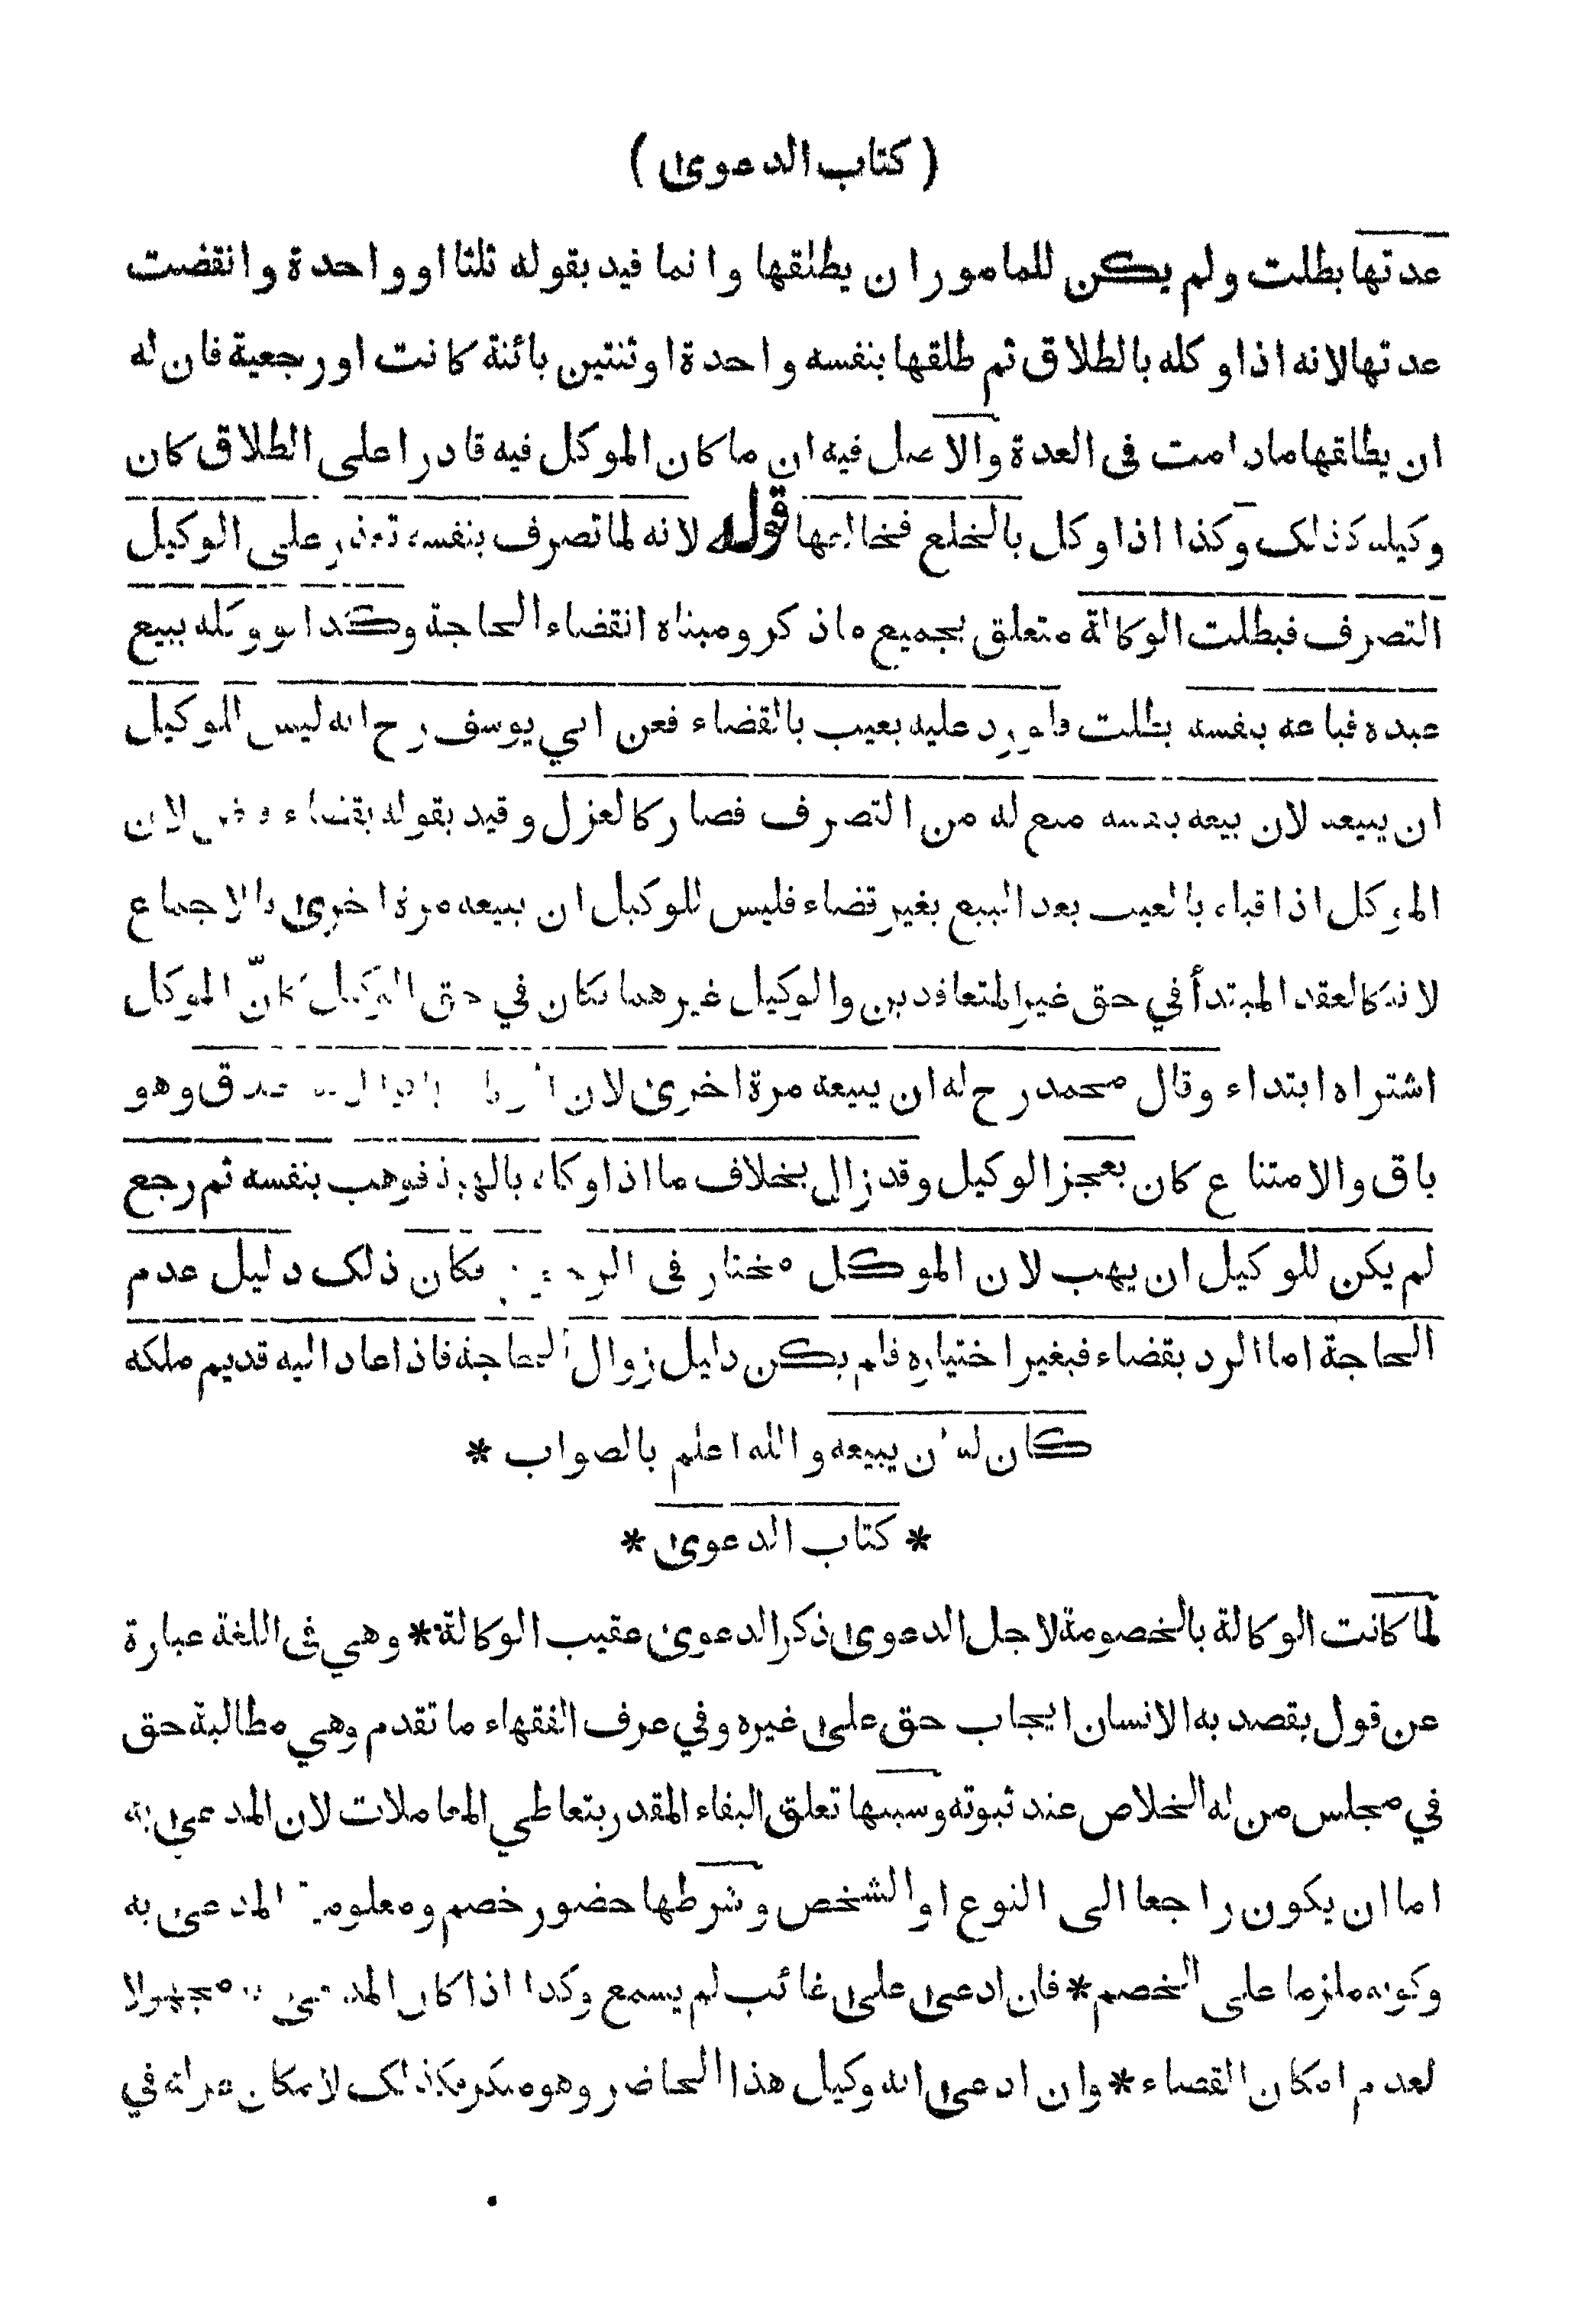 ( كتاب الدعوى )
عدتها بطلت ولم يكن للمامور ان يطلقها وانما قيد بقوله ثلثا او واحدة وانقضت
عدتها لانه اذا وكله بالطلاق ثم طلقها بنفسه واحدة او ثنتين بائنة كانت او رجعية فان له
ان يطلقها مادامت في العدة والاصل فيه ان ما كان الموكل فيه قادرا على الطلاق كان
وكيله كذلك وكذا اذا وكل بالخلع فخالعها قوله لانه لما تصرف بنفسه تعذر على الوكيل
التصرف فبطلت الوكالة متعلق بجميع ما ذكر ومبناه انقضاء الحاجة وكذا لو وكله ببيع
عبده فباعه بنفسه بطلت فلو رد عليه بعيب بالقضاء فعن ابي يوسف رح انه ليس للوكيل
ان يبيعه لان بيعه بنفسه منع له من التصرف فصار كالعزل وقيد بقوله بقضاء لان
الموكل اذا قبله بالعيب بعد البيع بغير قضاء فليس للوكيل ان يبيعه مرة اخرى بالاجماع
لانه كالعقد المبتدأ في حق غير المتعاقدين والوكيل غيرهما فكان في حق الوكيل كانّ الموكل
اشتراه ابتداء وقال محمد رح له ان يبيعه مرة اخرى لان وهو
باق والامتناع كان بعجز الوكيل وقد زال بخلاف ما اذا وكله بالهبة فوهب بنفسه ثم رجع
لم يكن للوكيل ان يهب لان الموكل مختار في فكان ذلك دليل عدم
الحاجة اما الرد بقضاء فبغير اختياره فلم يكن دليل زوال الحاجة فاذا عاد اليه قديم ملكه
كان له ان يبيعه والله اعلم بالصواب *
* كتاب الدعوى *
لما كانت الوكالة بالخصومة لاجل الدعوى ذكر الدعوى عقيب الوكالة * وهي في اللغة عبارة
عن قول يقصد به الانسان ايجاب حق على غيره وفي عرف الفقهاء ما تقدم وهي مطالبة حق
في مجلس من له الخلاص عند ثبوته وسببها تعلق البقاء المقدر بتعاطي المعاملات لان المدعى به
اما ان يكون راجعا الى النوع او الشخص وشرطها حضور خصم ومعلومية المدعى به
وكونه ملزما على الخصم * فان ادعى على غائب لم يسمع وكذا اذا كان المدعى به مجهولا
لعدم امكان القضاء * وان ادعى انه وكيل هذا الحاضر وهو منكر فكذلك لامكان عزله في